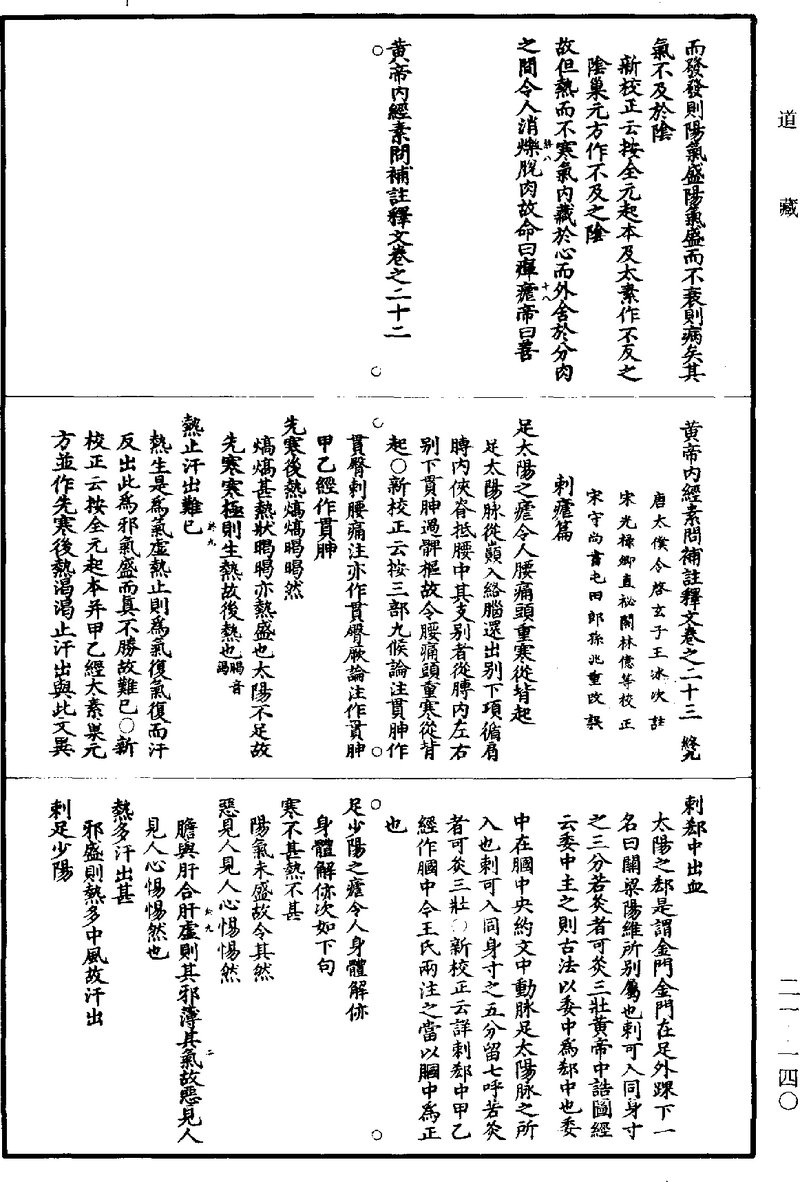 道藏
而發發則陽氣盛陽氣盛而不衰則病矣其
氣不及於陰
新校正云按全元起本及太素作不反之
陰巢元方作不及之陰
故但熱而不寒氣內藏於心而外舍於分肉
之間令人消爍脫肉故命曰癉瘧帝曰善
黄帝內經素問補註釋文卷之二十二
黄帝內經素問補註釋文卷之二十三 終九
唐太僕令啓玄子王冰次註
宋光祿卿直祕閣林億等校正
宋守尚書屯田郎孫兆重改誤
刺瘧篇
足太陽之瘧令人腰痛頭重寒從背起
足太陽脉從巔入絡腦還出别下項循肩
膊內俠脊抵腰中其支别者從膊內左右
别下貫胂過髀樞故令腰痛頭重寒從背
起○新校正云按三部九候論注貫胂作
貫臀刺腰痛注亦作貫臀厥論注作貫胂
甲乙經作貫胂
先寒後熱熇熇暍暍然
熇熇甚熱狀暍暍亦熱盛也太陽不足故
先寒寒極則生熱故後熱也暍音謁
熱止汗出難已
熱生是爲氣虛熱止則爲氣復氣復而汗
反出此爲邪氣盛而真不勝故難已○新
校正云按全元起本并甲乙經太素巢元
方並作先寒後熱渴渴止汗出與此文異
刺郄中出血
太陽之郄是謂金門金門在足外踝下一
名曰關梁陽維所别屬也刺可入同身寸
之三分若灸者可灸三壯黄帝中誥圖經
云委中主之則古法以委中爲郄中也委
中在膕中央約文中動脉足太陽脉之所
入也刺可入同身寸之五分留七呼若灸
者可灸三壯○新校正云詳刺郄中甲乙
經作膕中今王氏兩注之當以膕中爲正
也
足少陽之瘧令人身體解㑊
身體解㑊次如下句
寒不甚熱不甚
陽氣未盛故令其然
惡見人見人心惕惕然
膽與肝合肝虛則其邪薄其氣故惡見人
見人心惕惕然也
熱多汗出甚
邪盛則熱多中風故汗出
刺足少陽
二一·一四〇